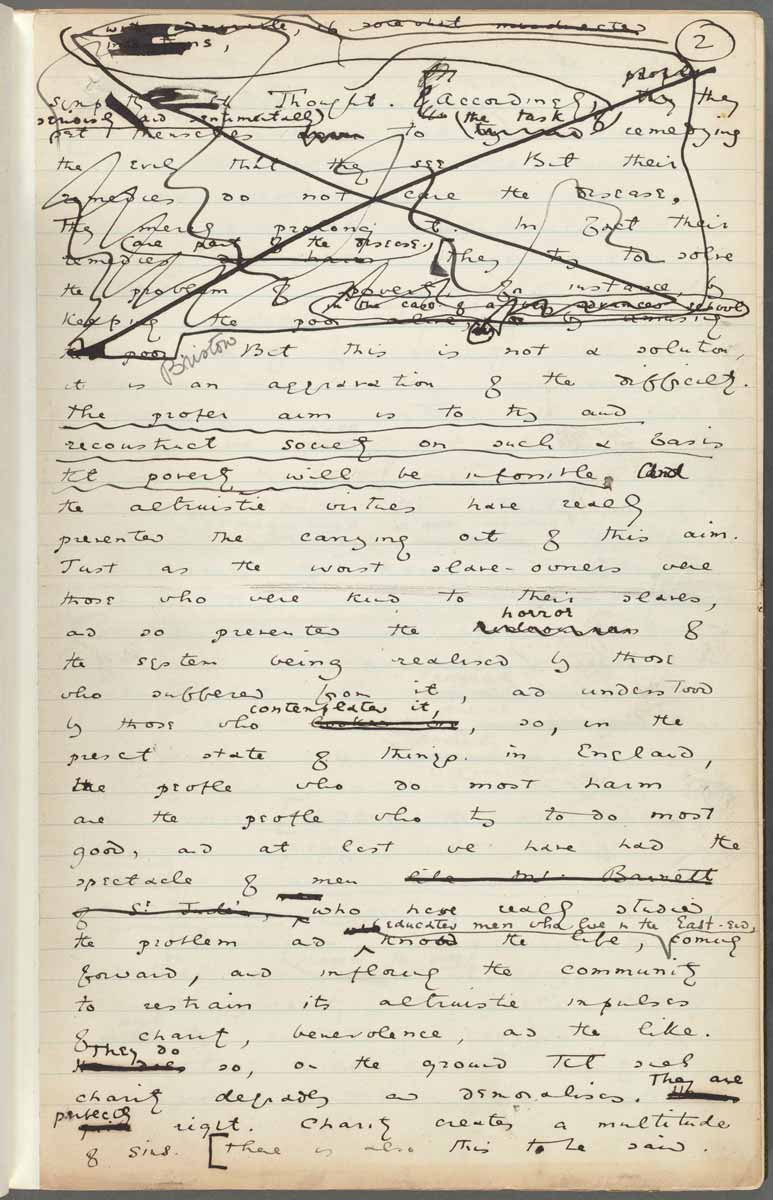 with admirable, if somewhat misdirected
intentions,
2
people
sympathy with Thought. Accordingly, they they
seriously and sentimentally (the task
set themselves to remedying
the evil that they see But their
remedies do not cure the disease,
They merely prolong it. In fact their
(are part of the disease.)
remedies They try to solve
the problem of poverty, for instance, by
in the case of a very advanced school
keeping the poor alive, by amusing
the poor Briston But this is not a solution,
it is an aggravation of the difficulty.
The proper aim is to try and
reconstruct society on such a basis
tht poverty will be impossible. And
the altruistic virtues have really
prevented the carrying out of this aim.
Just as the worst slave-owners were
those who were kind to their slaves,
horror
ad so prevented the of
the system being realised by those
who suffered from it, ad understood
contemplated it,
by those who looked on, so, in the
present state of things in England,
the people who do most harm
are the people who try to do most
good, ad at last we have had the
spectacle of men like Mr. Barnett
of St Jude's, who have really studied
educated men who live in the East-End,
the problem ad know the life, coming
forward, and imploring the community
to restrain its altruistic impulses
of charity, benevolence, ad the like.
They do
He does so, on the ground tht such
charity degrades ad demoralises. They are
perfectly
quite right. Charity creates a multitude
of sins. [There is also this to be said.